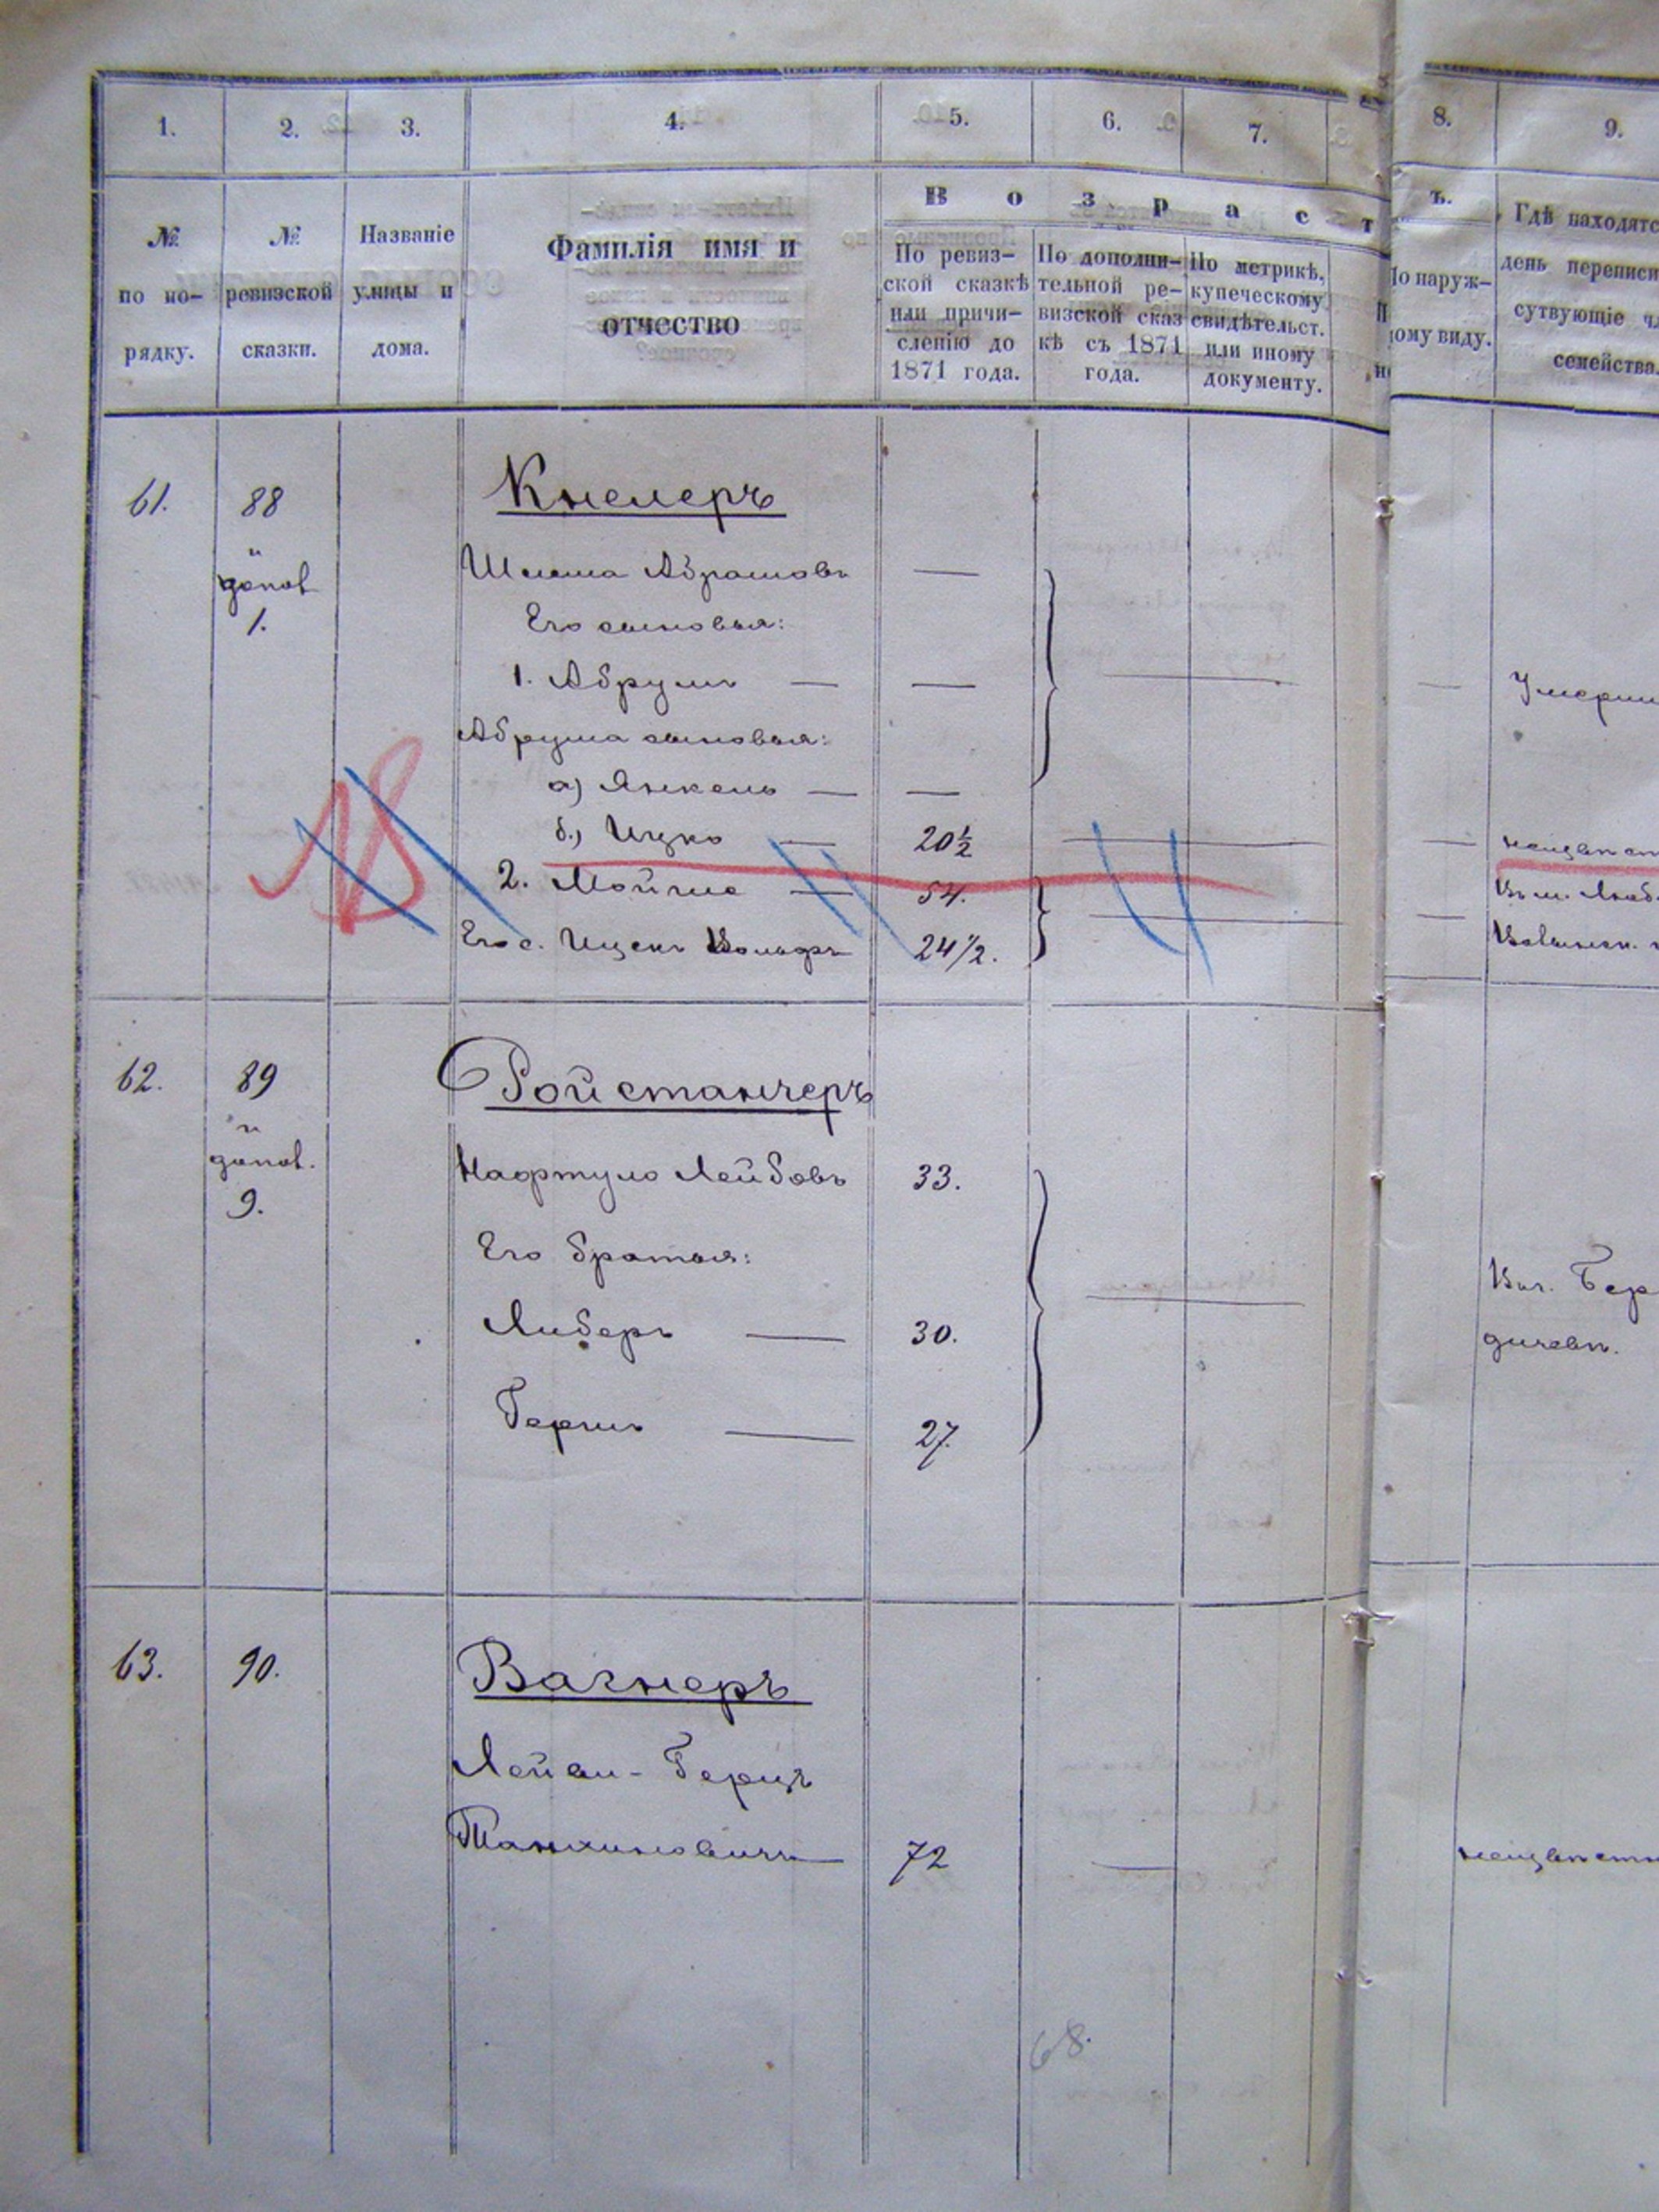 1. 2. 3. 4. 5. 6. 7. 8. 9.
В о з р а с т ъ.
№ по по- рядку.
№ ревизской сказки.
Названіе улицы и дома.
Фамилія имя и отчество
По ревиз-
ской сказкѣ
или причи-
сленію до
1871 года.
По дополни-
тельной ре-
визской сказ
кѣ съ 1871
года.
По метрикѣ,
купеческому
свидѣтельст.
или иному
документу.
По наруж-
ному виду.
Гдѣ находятс
день переписи
сутвующіе чл
семейства.
61. 88 Кнелеръ
и
допол
1.
Шлема Абрамовъ —
Его сыновья:
1. Абрумъ — —
Умерли
Абрума сыновья:
а) Янкель — —
б) Ицко — 20½
неизвѣстн
2. Мойше — 54.
Въ м. Люб
Его с. Ицекъ Вольфъ 24½.
Волынск.
62. 89 Ройстанчеръ
и
допол.
9.
Нафтула Лейбовъ 33.
Его братья:
Либеръ — 30.
Гершъ — 27.
Въ г. Бер
дичевѣ.
63. 90. Вагнеръ
Герцъ
Танхиновичъ 72 —
неизвѣстн
68.